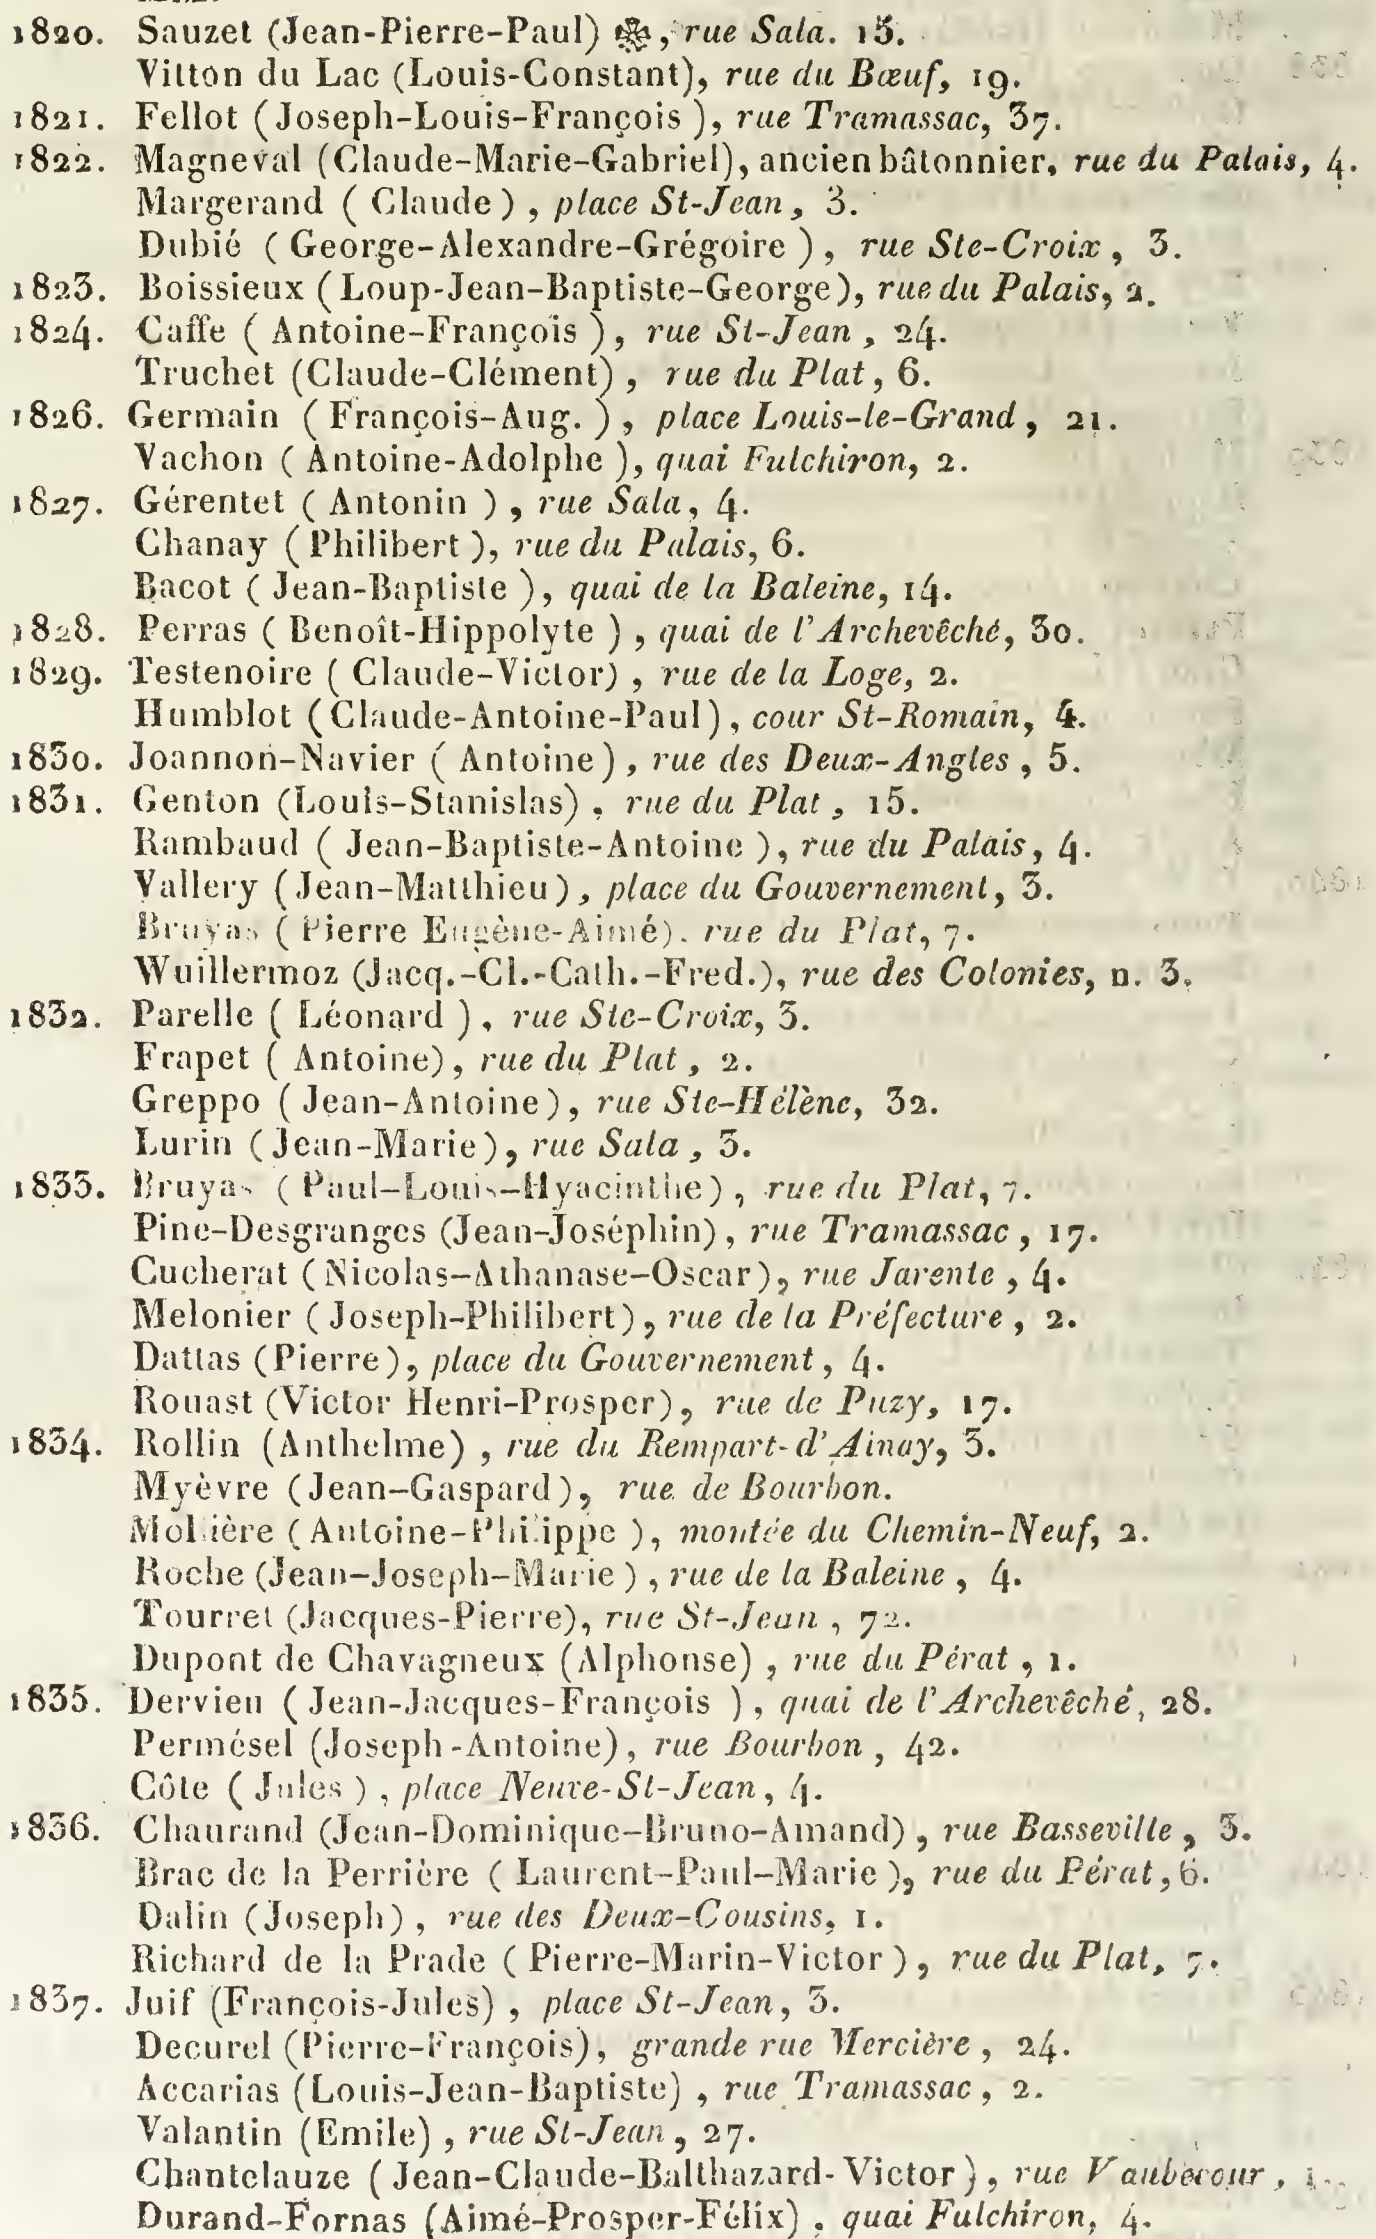 1820. Sauzet (Jean-Pierre-Paul) ✻, rue Sala. 15.
Vitton du Lac (Louis-Constant), rue du Bœuf, 19.
1821. Fellot (Joseph-Louis-François), rue Tramassac, 37.
1822. Magneval (Claude-Marie-Gabriel), ancien bâtonnier, rue du Palais, 4.
Margerand (Claude), place St-Jean, 3.
Dubié (George-Alexandre-Grégoire), rue Ste-Croix, 3.
1823. Boissieux (Loup-Jean-Baptiste-George), rue du Palais, 2.
1824. Caffe (Antoine-François), rue St-Jean, 24.
Truchet (Claude-Clément), rue du Plat, 6.
1826. Germain (François-Aug.), place Louis-le-Grand, 21.
Vachon (Antoine-Adolphe), quai Fulchiron, 2.
1827. Gérentet (Antonin), rue Sala, 4.
Chanay (Philibert), rue du Palais, 6.
Bacot (Jean-Baptiste), quai de la Baleine, 14.
1828. Perras (Benoît-Hippolyte), quai de l'Archevêché, 30.
1829. Testenoire (Claude-Victor), rue de la Loge, 2.
Humblot (Claude-Antoine-Paul), cour St-Romain, 4.
1830. Joannon-Navier (Antoine), rue des Deux-Angles, 5.
1831. Genton (Louis-Stanislas), rue du Plat, 15.
Rambaud (Jean-Baptiste-Antoine), rue du Palais, 4.
Vallery (Jean-Matthieu), place du Gouvernement, 3.
Bruyas (Pierre Eugène-Aimé). rue du Plat, 7.
Wuillermoz (Jacq.-Cl.-Cath.-Fred.), rue des Colonies, n. 3.
1832. Parelle (Léonard), rue Ste-Croix, 3.
Frapet (Antoine), rue du Plat, 2.
Greppo (Jean-Antoine), rue Ste-Hélène, 32.
Lurin (Jean-Marie), rue Sala, 3.
1833. Bruyas (Paul-Louis-Hyacinthe), rue du Plat, 7.
Pine-Desgranges (Jean-Joséphin), rue Tramassac, 17.
Cucherat (Nicolas-Athanase-Oscar), rue Jarente, 4.
Melonier (Joseph-Philibert), rue de la Préfecture, 2.
Dattas (Pierre), place du Gouvernement, 4.
Rouast (Victor Henri-Prosper), rue de Puzy, 17.
1834. Rollin (Anthelme), rue du Rempart-d'Ainay, 3.
Myèvre (Jean-Gaspard), rue de Bourbon.
Mollière (Antoine-Philippe), montée du Chemin-Neuf, 2.
Roche (Jean-Joseph-Marie), rue de la Baleine, 4.
Tourret (Jacques-Pierre), rue St-Jean, 72.
Dupont de Chavagneux (Alphonse), rue du Pérat, 1.
1835. Dervieu (Jean-Jacques-François), quai de l'Archevêché, 28.
Permésel (Joseph-Antoine), rue Bourbon, 42.
Côte (Jules), place Neuve-St-Jean, 4.
1836. Chaurand (Jean-Dominique-Bruno-Amand), rue Basseville, 3.
Brac de la Perrière (Laurent-Paul-Marie), rue du Pérat, 6.
Dalin (Joseph), rue des Deux-Cousins, 1.
Richard de la Prade (Pierre-Marin-Victor), rue du Plat, 7.
1837. Juif (François-Jules), place St-Jean, 3.
Decurel (Pierre-François), grande rue Mercière, 24.
Accarias (Louis-Jean-Baptiste), rue Tramassac, 2.
Valantin (Emile), rue St-Jean, 27.
Chantelauze (Jean-Claude-Balthazard-Victor), rue Vaubecour,
Durand-Fornas (Aimé-Prosper-Félix), quai Fulchiron, 4.